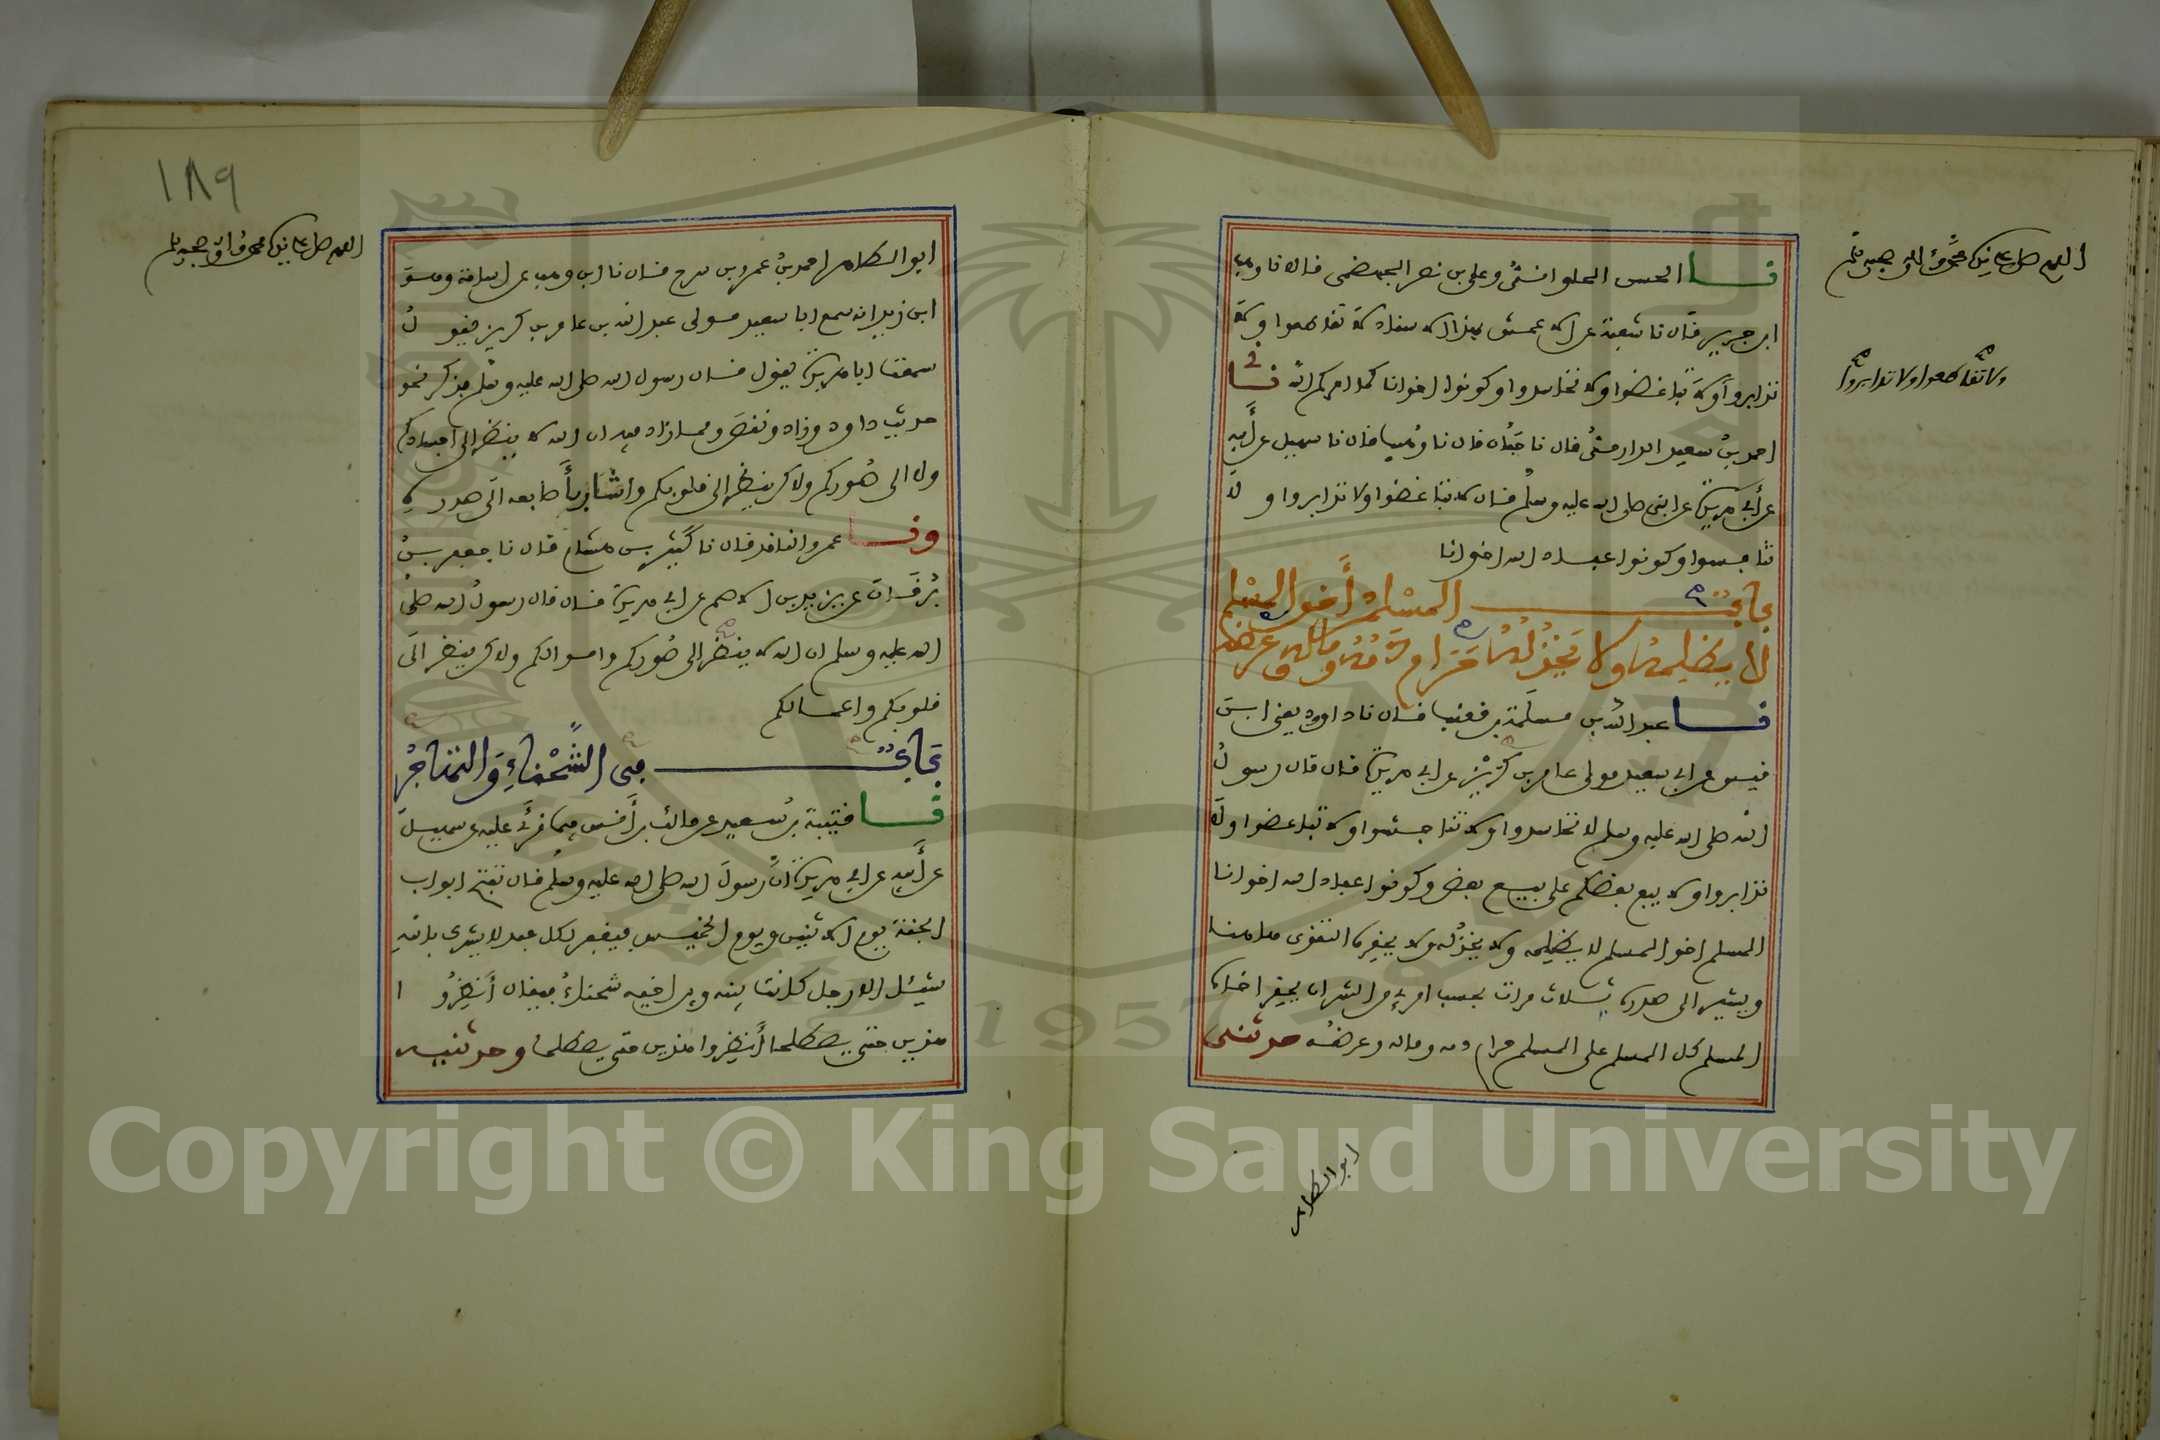 اللهم صل على نبيك محمد وآله وصحبه وسلم
ولا تقاطعوا ولا تدابروا
نا الحسن الحلواني وعلي بن نصر الجهضمي قالا نا وهب
ابن جرير قال نا شعبة عن الاعمش بهذا الاسناد لا تقاطعوا ولا
تدابروا ولا تباغضوا ولا تحاسدوا وكونوا اخوانا كما امركم الله نا
احمد بن سعيد الدارمي قال نا حبان قال نا وهيب قال نا سهيل عن أبيه
عن أبي هريرة عن النبي صلى الله عليه وسلم قال لا تباغضوا ولا تدابروا ولا
تنافسوا وكونوا عباد الله اخوانا
باب المسلم أخو المسلم
لا يظلمه ولا يخذله حرام دمه وماله وعرضه
نا عبد الله بن مسلمة بن قعنب قال نا داود يعني ابن
قيس عن ابي سعيد مولى عامر بن كريز عن ابي هريرة قال قال رسول
الله صلى الله عليه وسلم لا تحاسدوا ولا تناجشوا ولا تباغضوا ولا
تدابروا ولا يبع بعضكم على بيع بعض وكونوا عباد الله اخوانا
المسلم اخو المسلم لا يظلمه ولا يخذله ولا يحقره التقوى هاهنا
ويشير الى صدره ثلاث مرات بحسب امرئ من الشر ان يحقر اخاه
المسلم كل المسلم على المسلم حرام دمه وماله وعرضه حدثني
ابو الطاهر
١٨٩
اللهم صل على نبيك محمد وآله وصحبه وسلم
ابو الطاهر احمد بن عمرو بن سرح قال نا ابن وهب عن اسامة وهو
ابن زيد انه سمع ابا سعيد مولى عبد الله بن عامر بن كريز يقول
سمعت ابا هريرة يقول قال رسول الله صلى الله عليه وسلم فذكر نحو
حديث داود وزاد ونقص ومما زاد فيه ان الله لا ينظر إلى اجسادكم
ولا الى صوركم ولاكن ينظر إلى قلوبكم واشار بأصابعه الى صدره
ونا عمرو الناقد قال نا كثير بن هشام قال نا جعفر بن
برقان عن يزيد بن الاصم عن ابي هريرة قال قال رسول الله صلى
الله عليه وسلم ان الله لا ينظر إلى صوركم واموالكم ولاكن ينظر الى
قلوبكم واعمالكم
باب في الشحناء والتهاجر
نا قتيبة بن سعيد عن مالك بن أنس فيما قرئ عليه عن سهيل
عن أبيه عن ابي هريرة ان رسول الله صلى الله عليه وسلم قال تفتح ابواب
الجنة يوم الاثنين ويوم الخميس فيغفر لكل عبد لا يشرك بالله
شيئا الا رجل كانت بينه وبين اخيه شحناء فيقال أنظروا
هذين حتى يصطلحا أنظروا هذين حتى يصطلحا وحدثنيه
Copyright © King Saud University
1957